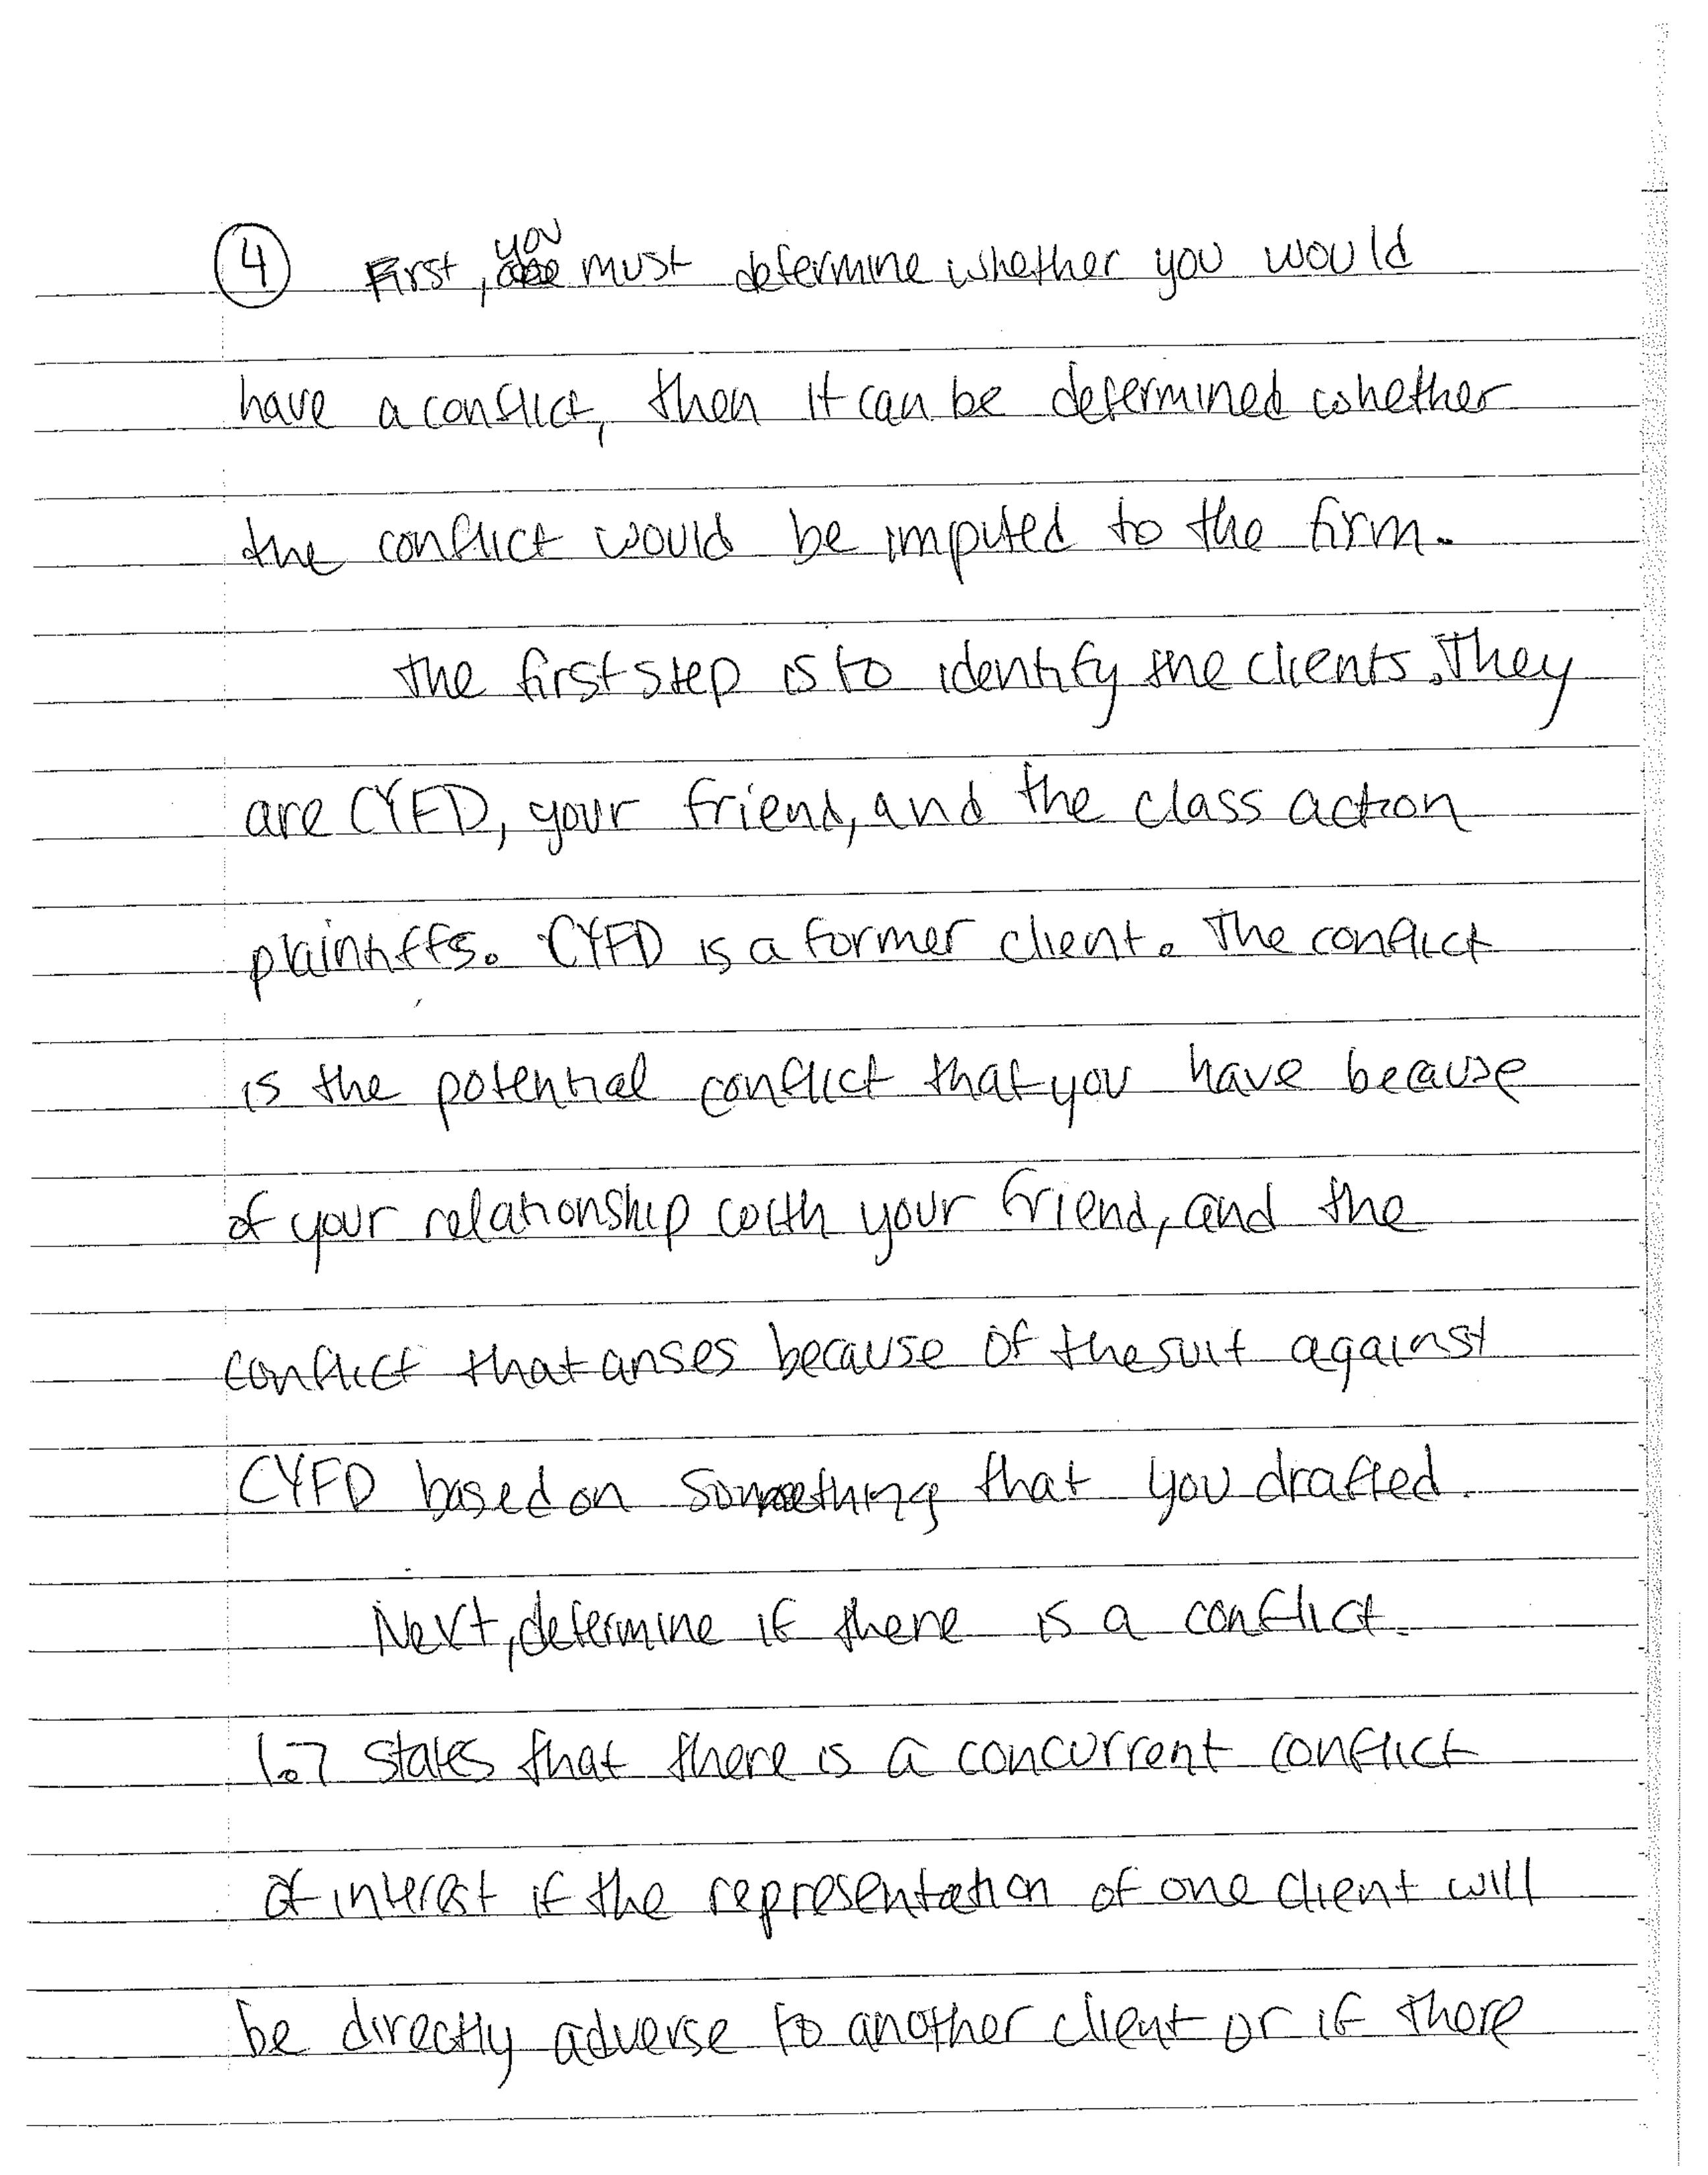 ④ First, you must determine whether you would
have a conflict, then it can be determined whether
the conflict would be imputed to the firm.
The first step is to identify the clients. They
are CYFD, your friend, and the class action
plaintiffs. CYFD is a former client. The conflict
is the potential conflict that you have because
of your relationship with your friend, and the
conflict that arises because of the suit against
CYFD based on something that you drafted.
Next, determine if there is a conflict.
1.7 states that there is a concurrent conflict
of interest if the representation of one client will
be directly adverse to another client or if there